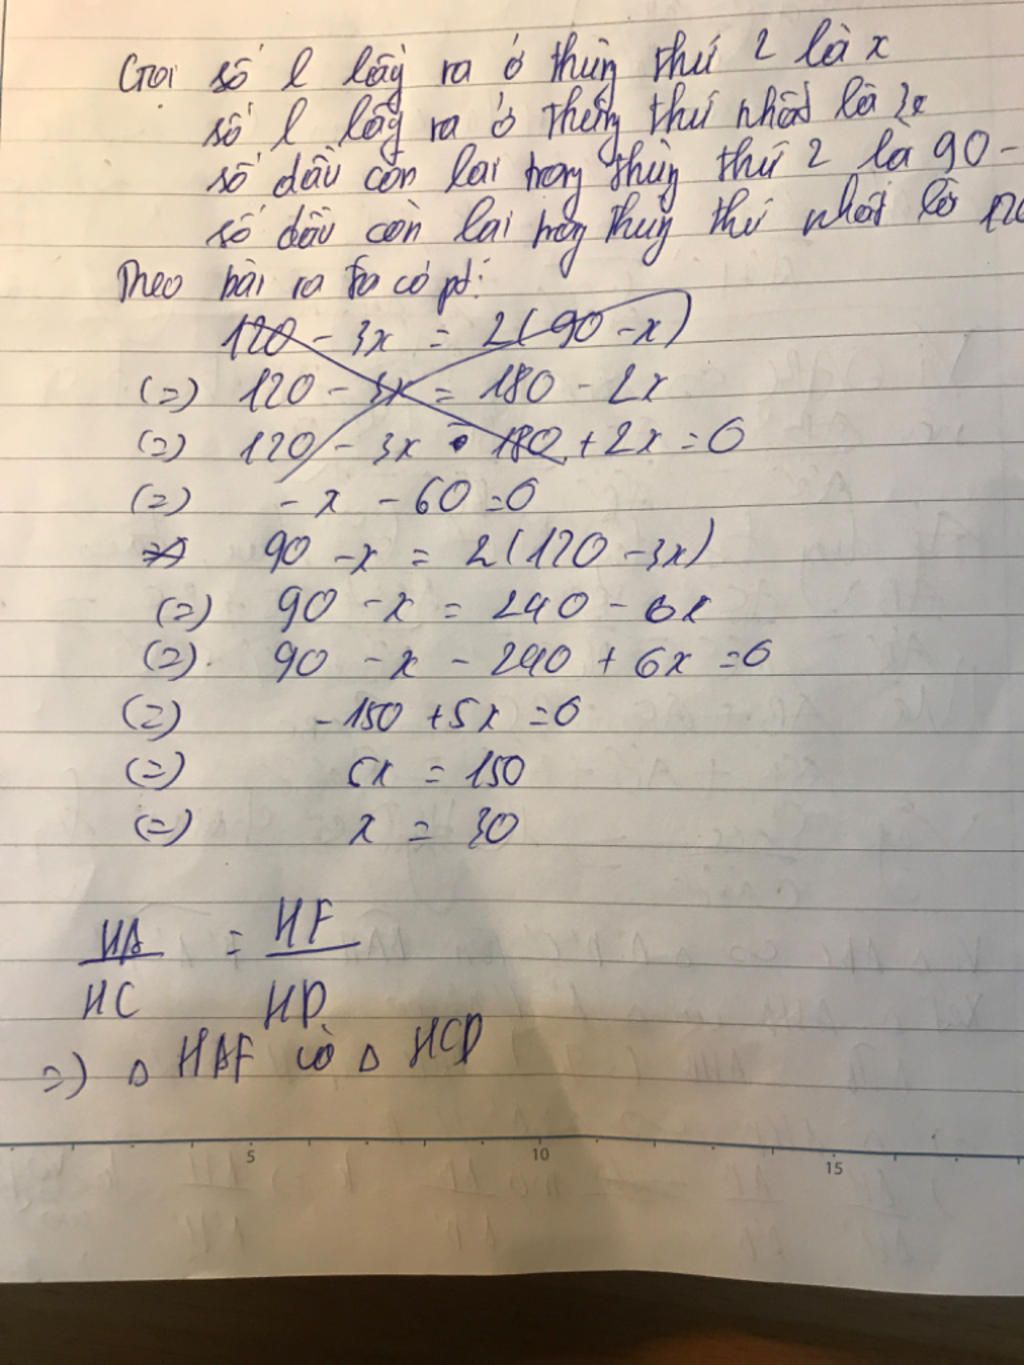 Gọi số l lấy ra ở thùng thứ 2 là x
số l lấy ra ở thùng thứ nhất là 3x
số dầu còn lại trong thùng thứ 2 là 90 -
số dầu còn lại trong thùng thứ nhất là 120
Theo bài ra ta có pt:
120 - 3x = 2(90 - x)
(=) 120 - 3x = 180 - 2x
(=) 120 - 3x - 180 + 2x = 0
(=) - x - 60 = 0
90 - x = 2(120 - 3x)
(=) 90 - x = 240 - 6x
(=) 90 - x - 240 + 6x = 0
(=) - 150 + 5x = 0
(=) 5x = 150
(=) x = 30
HA = HF
HC HD
=) Δ HAF Δ HCD
5 10 15